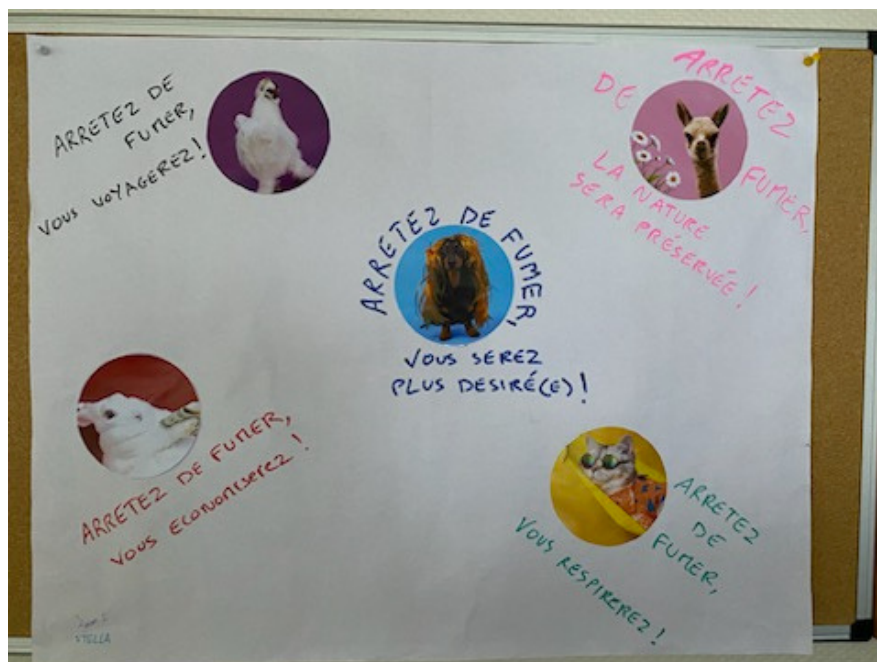 ARRETEZ DE
FUMER,
VOUS VOYAGEREZ!
ARRETEZ
DE
FUMER,
LA NATURE
SERA PRÉSERVÉE!
ARRETEZ DE FUMER,
VOUS SEREZ
PLUS DESIRÉ(E)!
ARRETEZ DE FUMER,
VOUS ECONOMISEREZ!
ARRETEZ
DE
FUMER,
VOUS RESPIREREZ!
STELLA